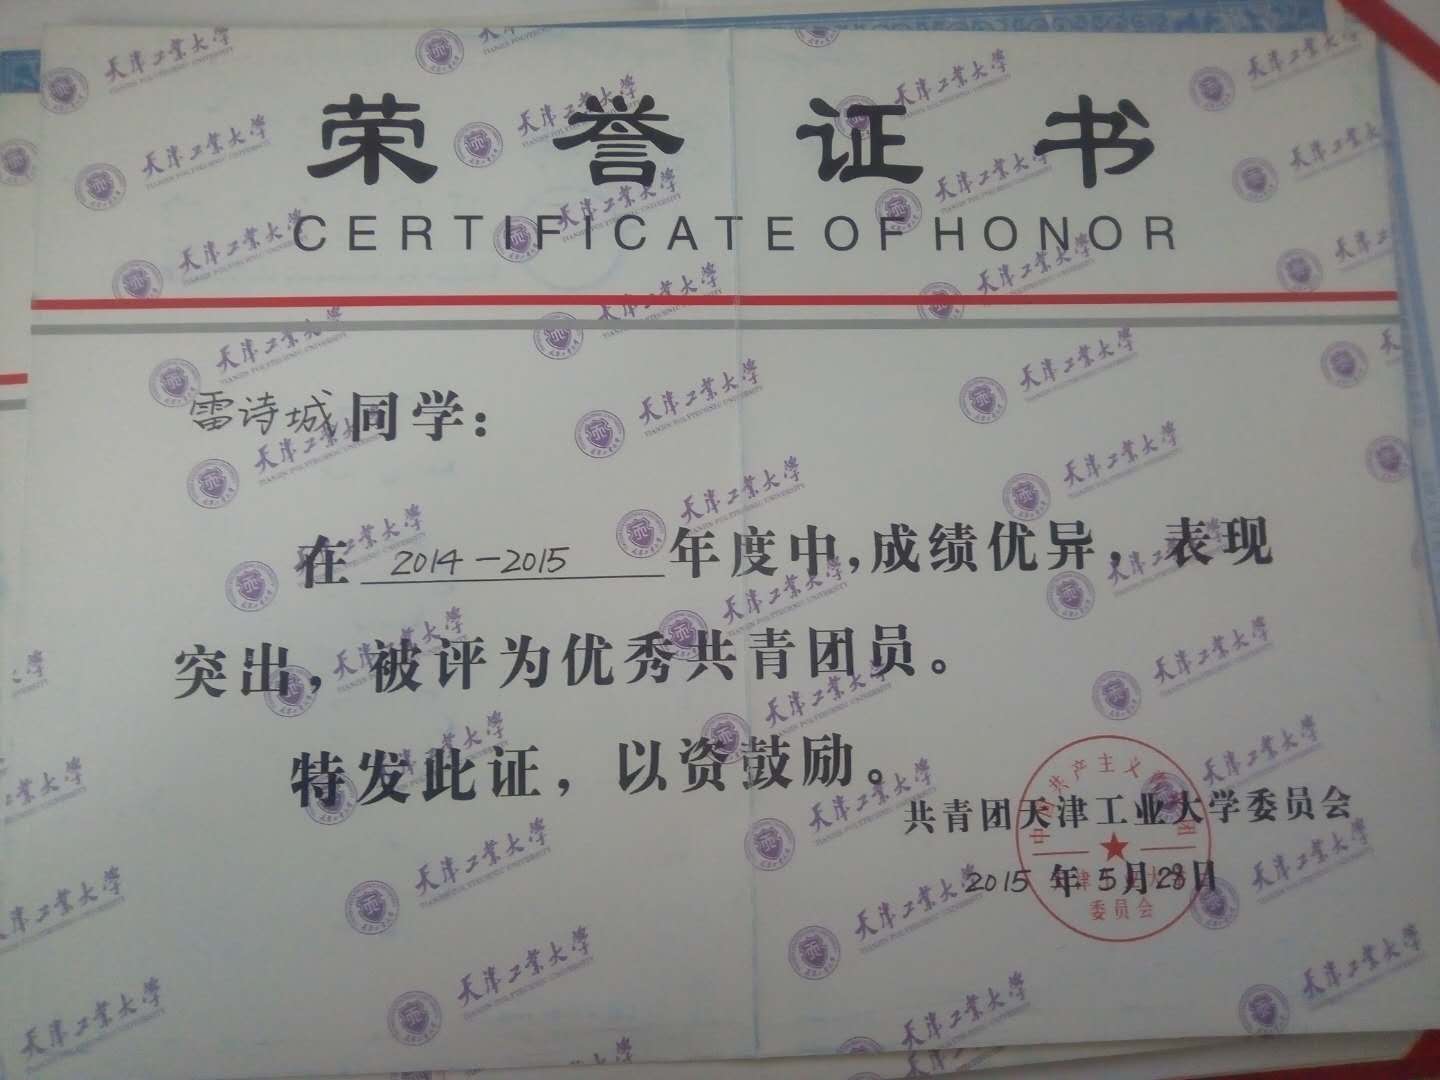 荣誉证书
CERTIFICATE OF HONOR
雷诗城同学：
在 2014-2015 年度中，成绩优异，表现
突出，被评为优秀共青团员。
特发此证，以资鼓励。
共青团天津工业大学委员会
2015年5月28日
委员会
天津工业大学
TIANJIN POLYTECHNIC UNIVERSITY